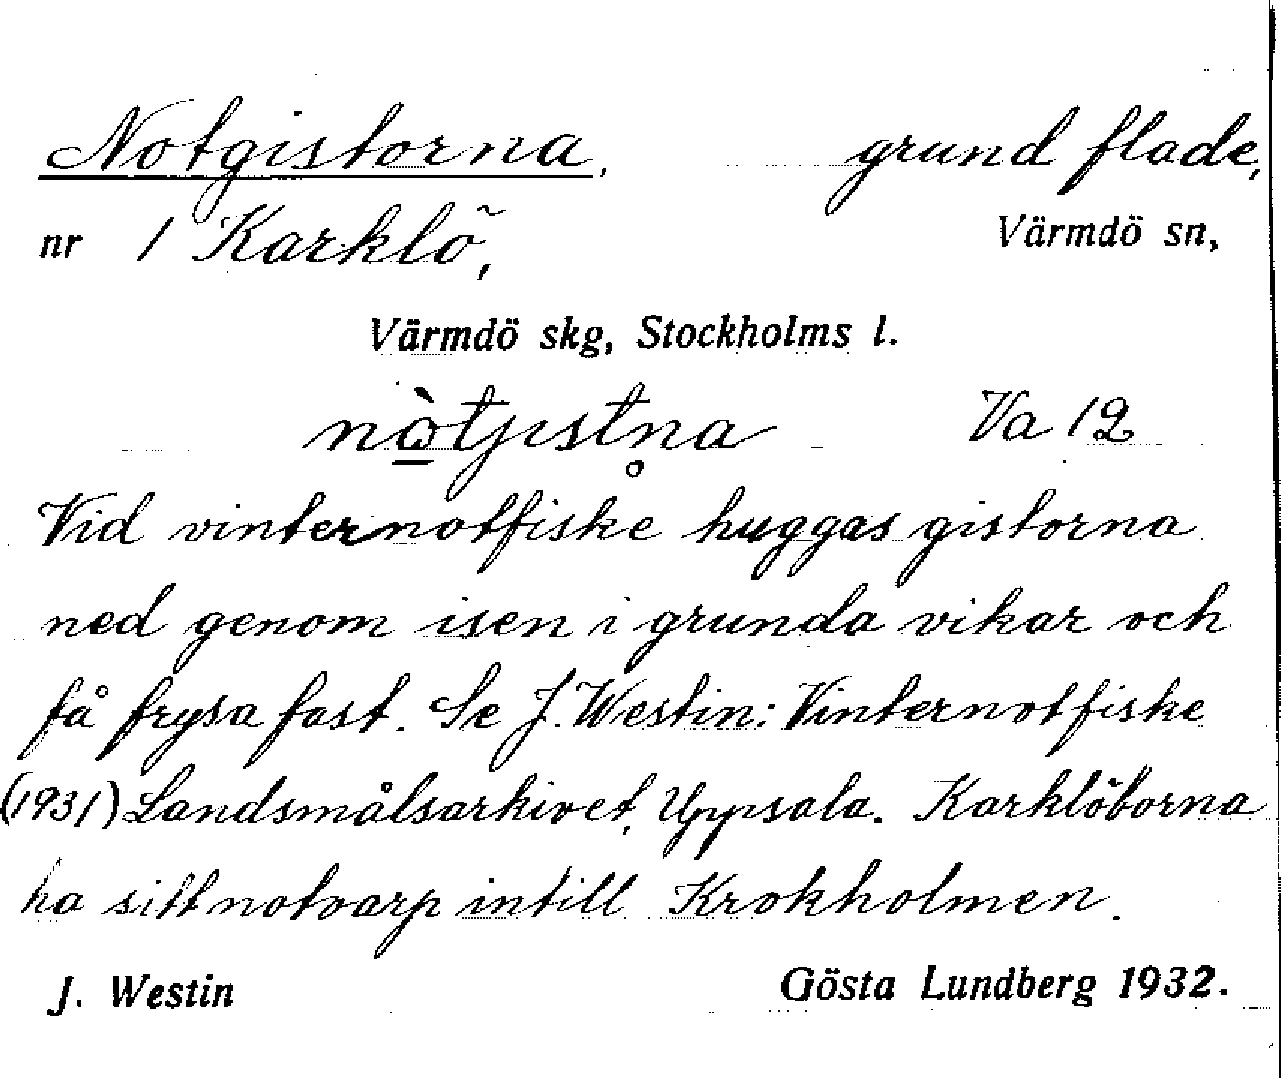 Notgistorna, grund flade,
nr 1 Karklö, Värmdö sn,
Värmdö skg, Stockholms l.
nò̲tjıstn̥a Va 12
Vid vinternotfiske huggas gistorna
ned genom isen i grunda vikar och
få frysa fast. Se J. Westin: Vinternotfiske
(1931) Landsmålsarkivet, Uppsala. Karklöborna
ha sitt notvarp intill Krokholmen.
J. Westin Gösta Lundberg 1932.